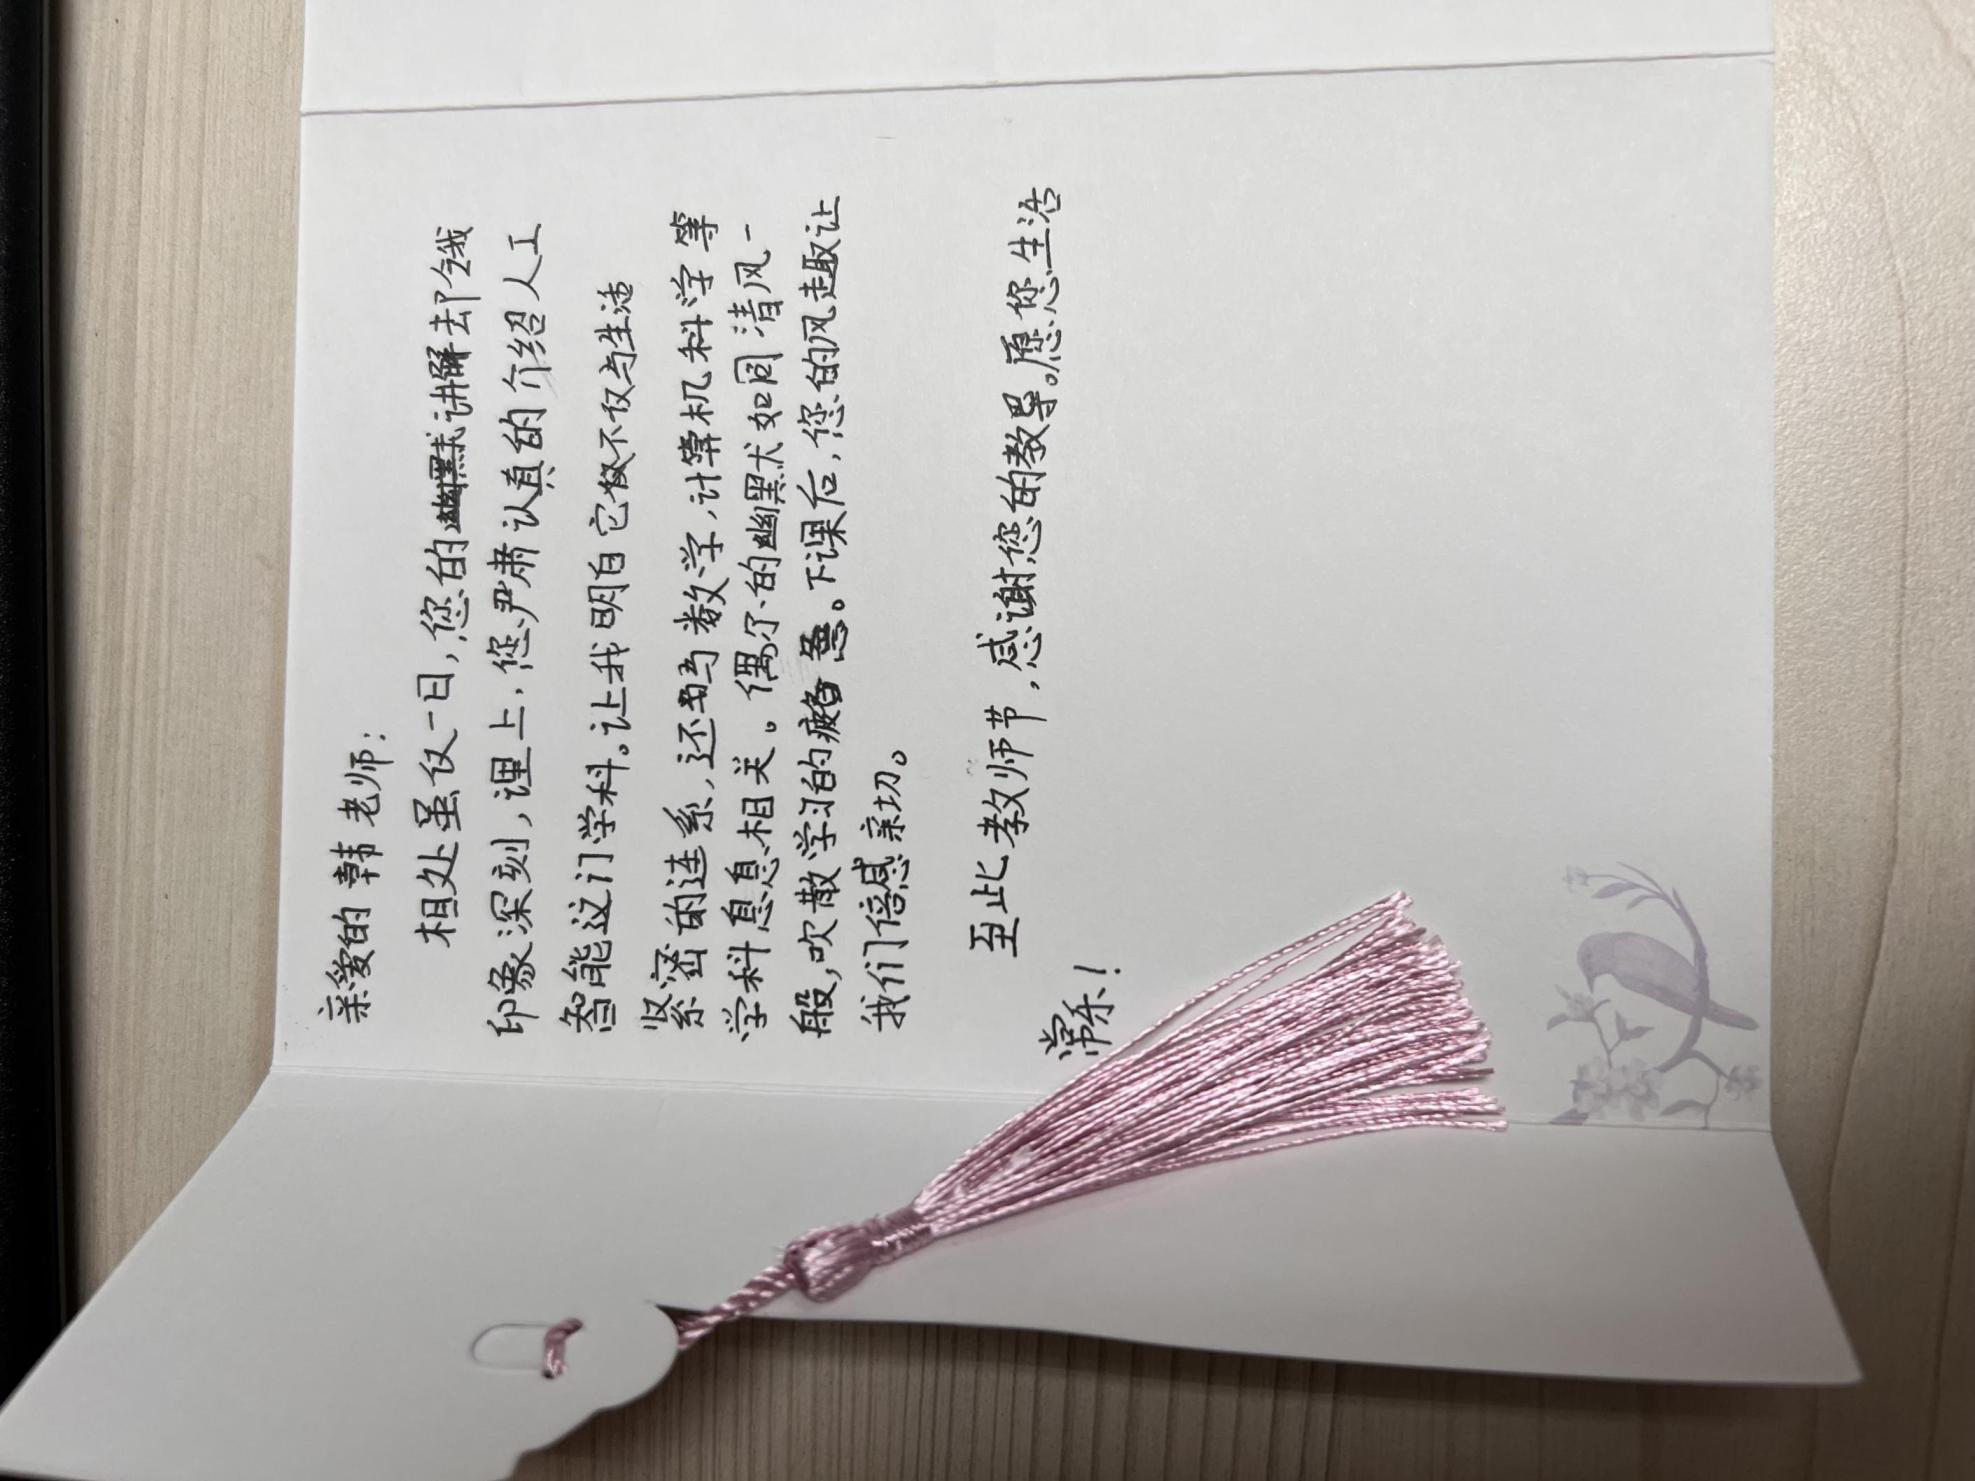 亲爱的韩老师：
相处虽仅一日，您的幽默讲解却令我
印象深刻，课上，您严肃认真的介绍人工
智能这门学科。让我明白它不仅与生活
紧密的连系，还与数学，计算机科学等
学科息息相关。偶尔的幽默犹如同清风一
般，吹散学习的疲惫。下课后，您的风趣让
我们倍感亲切。
至此教师节，感谢您的教导。愿您生活
常乐！